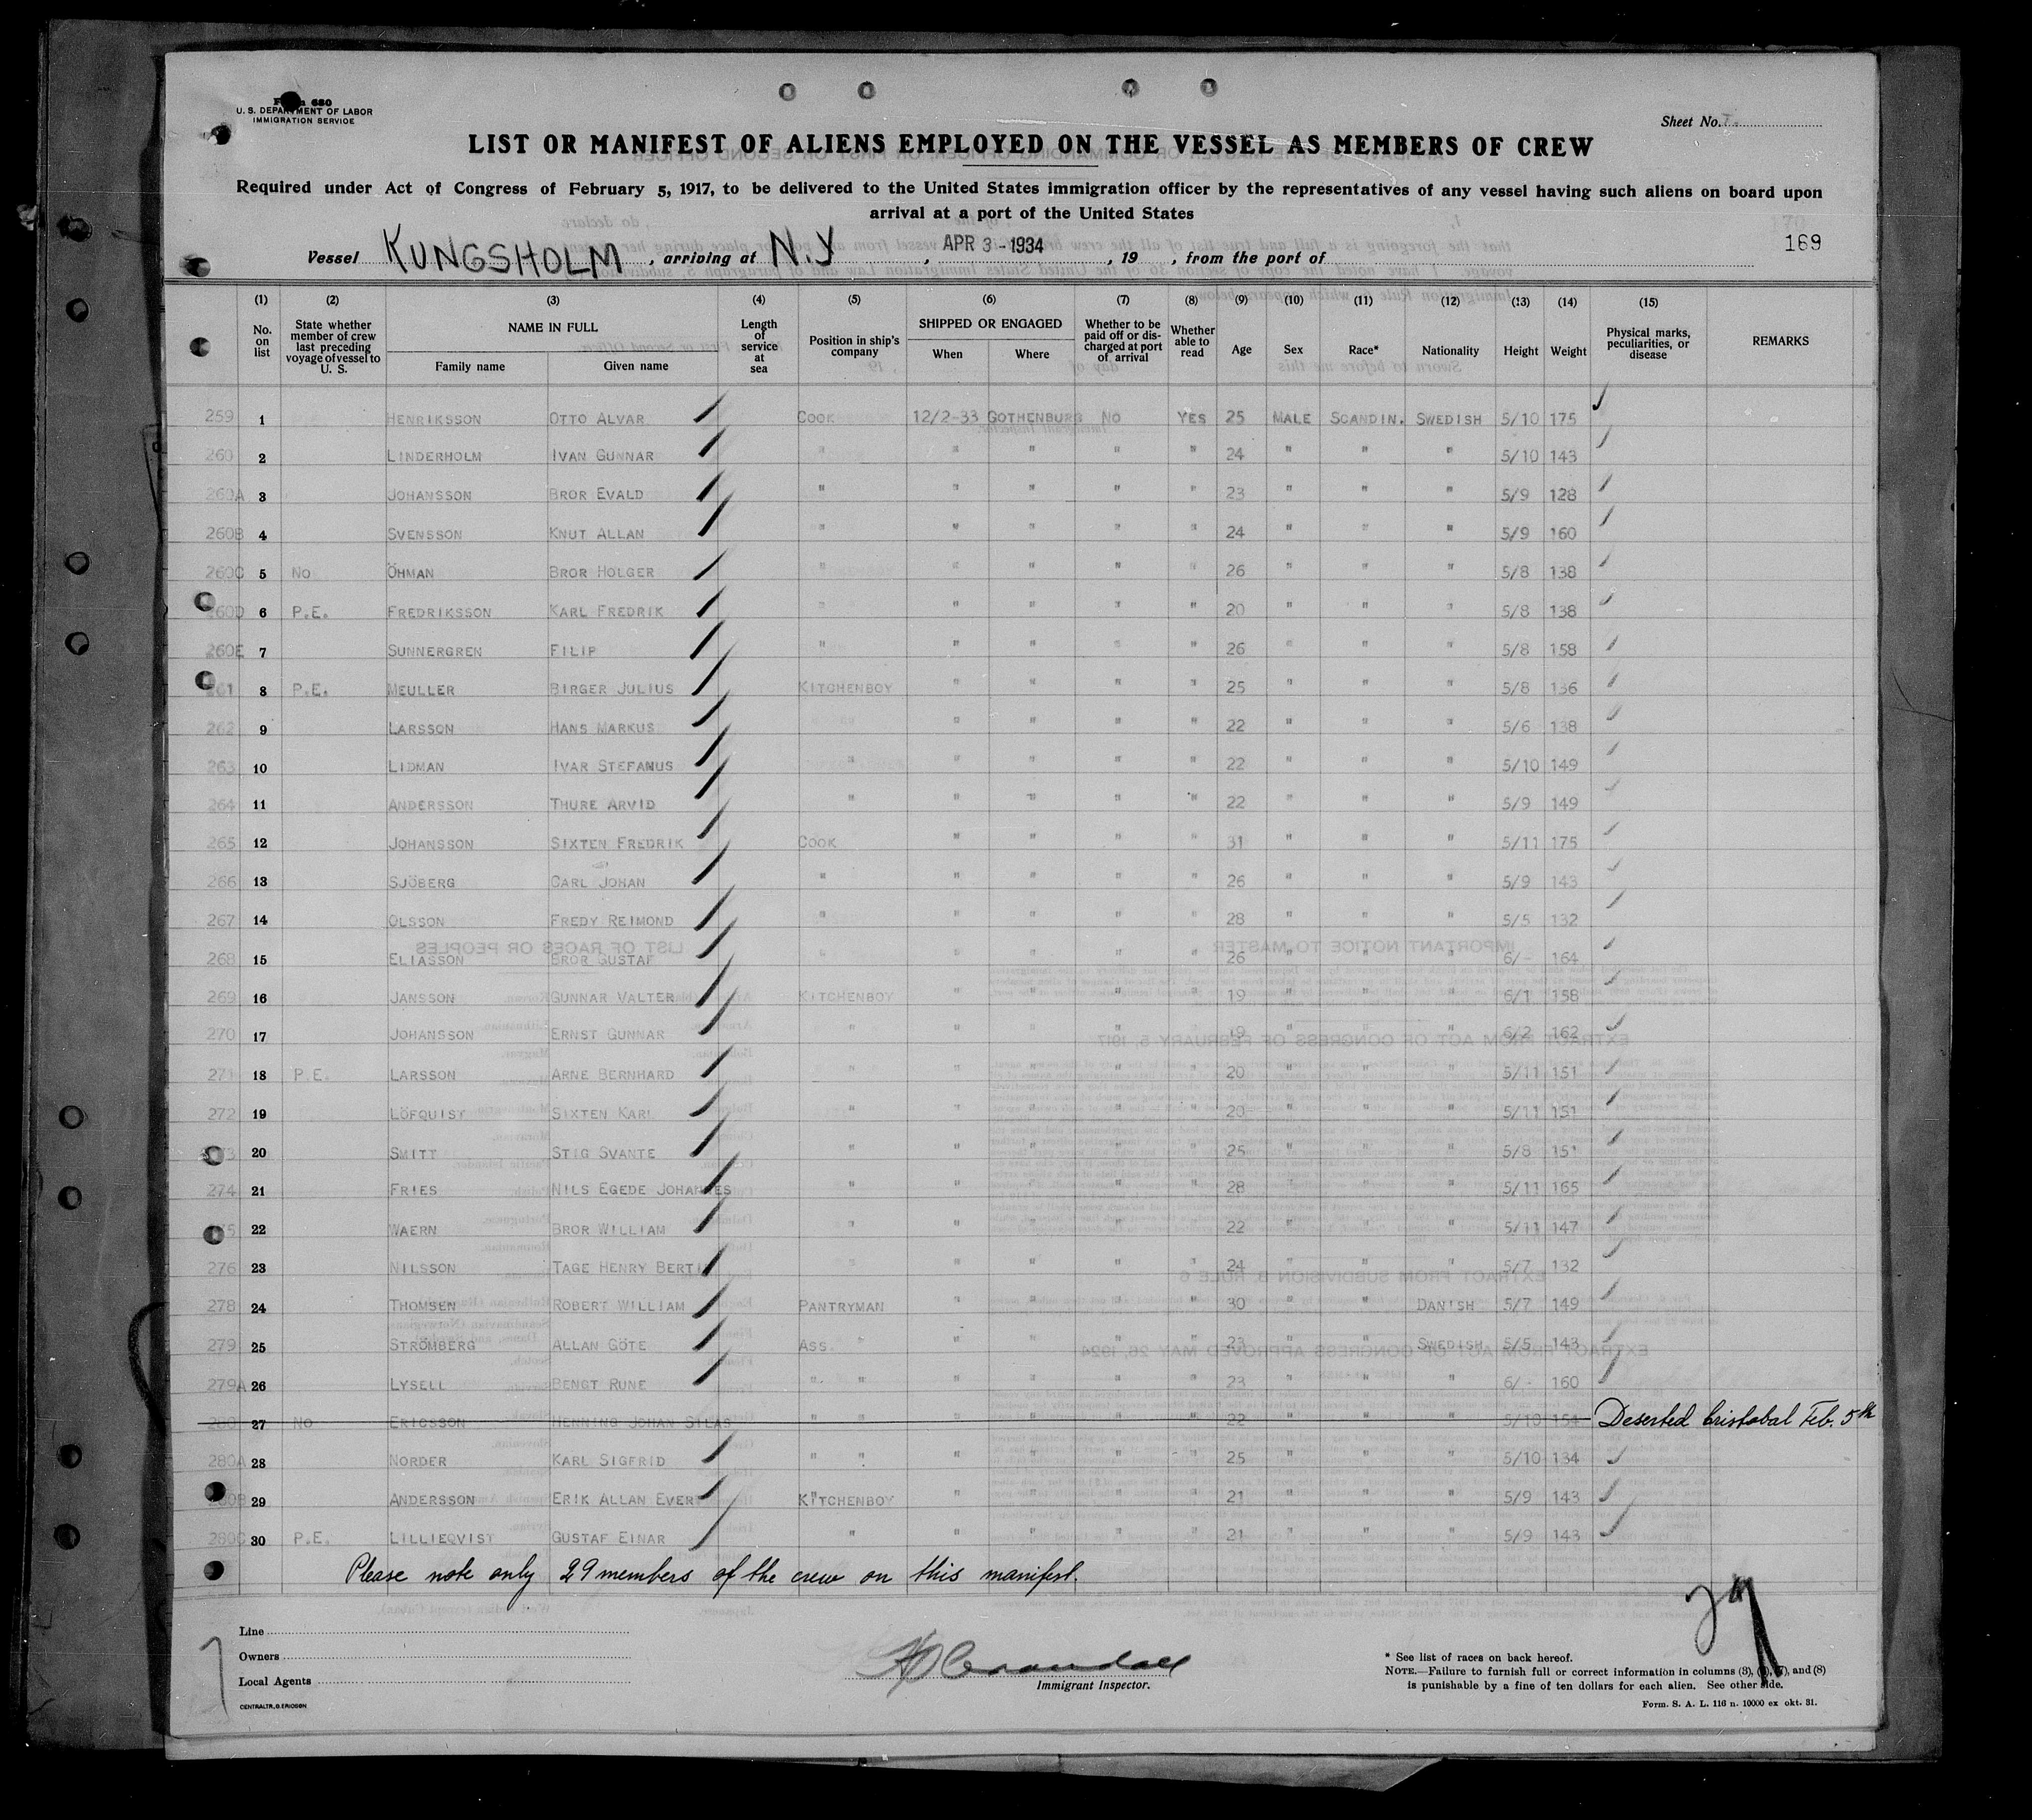 Form 680
U. S. DEPARTMENT OF LABOR
IMMIGRATION SERVICE
Sheet No.
LIST OR MANIFEST OF ALIENS EMPLOYED ON THE VESSEL AS MEMBERS OF CREW
Required under Act of Congress of February 5, 1917, to be delivered to the United States immigration officer by the representatives of any vessel having such aliens on board upon
arrival at a port of the United States
Vessel KUNGSHOLM, arriving at N.Y, APR 3 - 1934, 19 , from the port of
169
(1) (2) (3) (4) (5) (6) (7) (8) (9) (10) (11) (12) (13) (14) (15)
No. on list State whether member of crew last preceding voyage of vessel to U. S. NAME IN FULL Family name Given name Length of service at sea Position in ship's company SHIPPED OR ENGAGED When Where Whether to be paid off or discharged at port of arrival Whether able to read Age Sex Race* Nationality Height Weight Physical marks, peculiarities, or disease REMARKS
259 1 HENRIKSSON OTTO ALVAR COOK 12/2-33 GOTHENBURG NO YES 25 MALE SCANDIN. SWEDISH 5/10 175
260 2 LINDERHOLM IVAN GUNNAR " " " " " 24 " " " 5/10 143
260A 3 JOHANSSON BROR EVALD " " " " " 23 " " " 5/9 128
260B 4 SVENSSON KNUT ALLAN " " " " " 24 " " " 5/9 160
260C 5 NO ÖHMAN BROR HOLGER " " " " " 26 " " " 5/8 138
260D 6 P.E. FREDRIKSSON KARL FREDRIK " " " " " 20 " " " 5/8 138
260E 7 SUNNERGREN FILIP " " " " " 26 " " " 5/8 158
261 8 P.E. MEULLER BIRGER JULIUS KITCHENBOY " " " " 25 " " " 5/8 136
262 9 LARSSON HANS MARKUS " " " " 22 " " " 5/6 138
263 10 LIDMAN IVAR STEFANUS " " " " " 22 " " " 5/10 149
264 11 ANDERSSON THURE ARVID " " " " " 22 " " " 5/9 149
265 12 JOHANSSON SIXTEN FREDRIK COOK " " " " 31 " " " 5/11 175
266 13 SJÖBERG CARL JOHAN " " " " " 26 " " " 5/9 143
267 14 OLSSON FREDY REIMOND " " " " " 28 " " " 5/5 132
268 15 ELIASSON BROR GUSTAF " " " " " 26 " " " 6/- 164
269 16 JANSSON GUNNAR VALTER KITCHENBOY " " " " 19 " " " 6/1 158
270 17 JOHANSSON ERNST GUNNAR " " " " " 19 " " " 6/2 162
271 18 P.E. LARSSON ARNE BERNHARD " " " " " 20 " " " 5/11 151
272 19 LÖFQUIST SIXTEN KARL " " " " " 20 " " " 5/11 151
273 20 SMITT STIG SVANTE " " " " " 25 " " " 5/8 151
274 21 FRIES NILS EGEDE JOHANNES " " " " " 28 " " " 5/11 165
275 22 WAERN BROR WILLIAM " " " " " 22 " " " 5/11 147
276 23 NILSSON TAGE HENRY BERTIL " " " " " 24 " " " 5/7 132
278 24 THOMSEN ROBERT WILLIAM PANTRYMAN " " " " 30 " " DANISH 5/7 149
279 25 STRÖMBERG ALLAN GÖTE ASS. " " " " " 23 " " SWEDISH 5/5 143
279A 26 LYSELL BENGT RUNE " " " " " " 23 " " " 6/- 160
280 27 NO ERICSSON HENNING JOHAN SILAS " " " " " " 22 " " " 5/10 154 Deserted Cristobal Feb. 5th
280A 28 NORDER KARL SIGFRID " " " " " " 25 " " " 5/10 134
280B 29 ANDERSSON ERIK ALLAN EVERT KITCHENBOY " " " " 21 " " " 5/9 143
280C 30 P.E. LILLIEQVIST GUSTAF EINAR " " " " " 21 " " " 5/9 143
Please note only 29 members of the crew on this manifest.
Line
Owners
Local Agents
CENTRALTR, G. ERICSON
Immigrant Inspector.
* See list of races on back hereof.
NOTE.—Failure to furnish full or correct information in columns (3), (6), (7), and (8)
is punishable by a fine of ten dollars for each alien. See other side.
Form. S. A. L. 116 n. 10000 ex okt. 31.